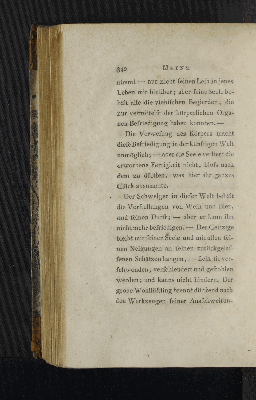 342 MAINZ
nimmt — nur zieht seinen Leib in jenes
Leben mit hinüber; aber seine Seele be-
hält alle die sinnlichen Begierden, die
nur vermittelst der körperlichen Orga-
nen Befriedigung haben konnten. —
Die Verwesung des Körpers macht
diese Befriedigung in der künftigen Welt
unmöglich; — aber die Seele verliert die
erworbene Fertigkeit nicht, stets nach
dem zu dürsten, was hier ihr ganzes
Glück ausmachte.
Der Schwelger in dieser Welt behält
die Vorstellungen von Wein und
und seinen Durst; — aber er kann ihn
nicht mehr befriedigen. — Der Geizige
bleibt mit seiner Seele und mit allen sei-
nen Neigungen an seinen zurückgelas-
senen Schätzen hangen, — sein ist ver-
schwunden, verschleudert und gestohlen
werden; und kann's nicht hindern. Der
grobe Wohllüstling brennt dürstend nach
den Werkzeugen seiner Ausschweifun-